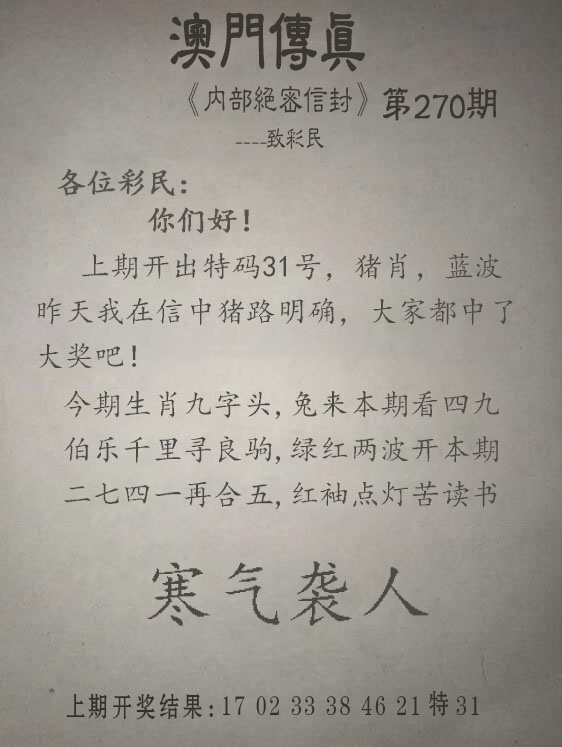 澳門傳眞
《内部絕密信封》第270期
----致彩民
各位彩民：
你们好！
上期开出特码31号，猪肖，蓝波
昨天我在信中猪路明确，大家都中了
大奖吧！
今期生肖九字头,兔来本期看四九
伯乐千里寻良驹,绿红两波开本期
二七四一再合五,红袖点灯苦读书
寒气袭人
上期开奖结果:17 02 33 38 46 21 特 31